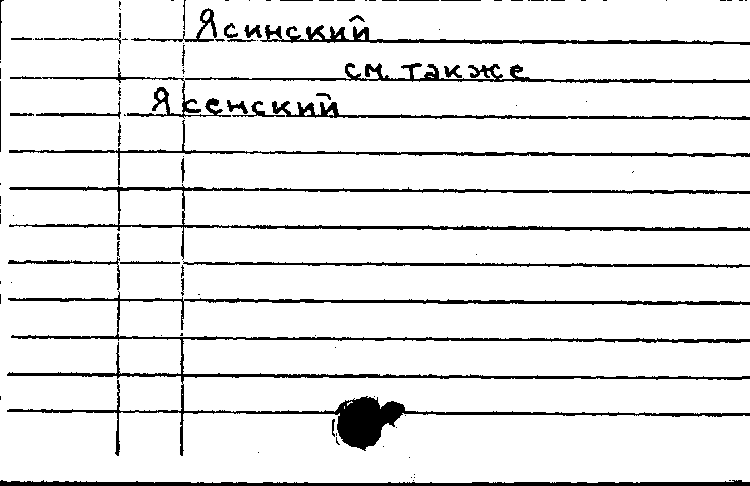 Ясинский
см. также
Ясенский